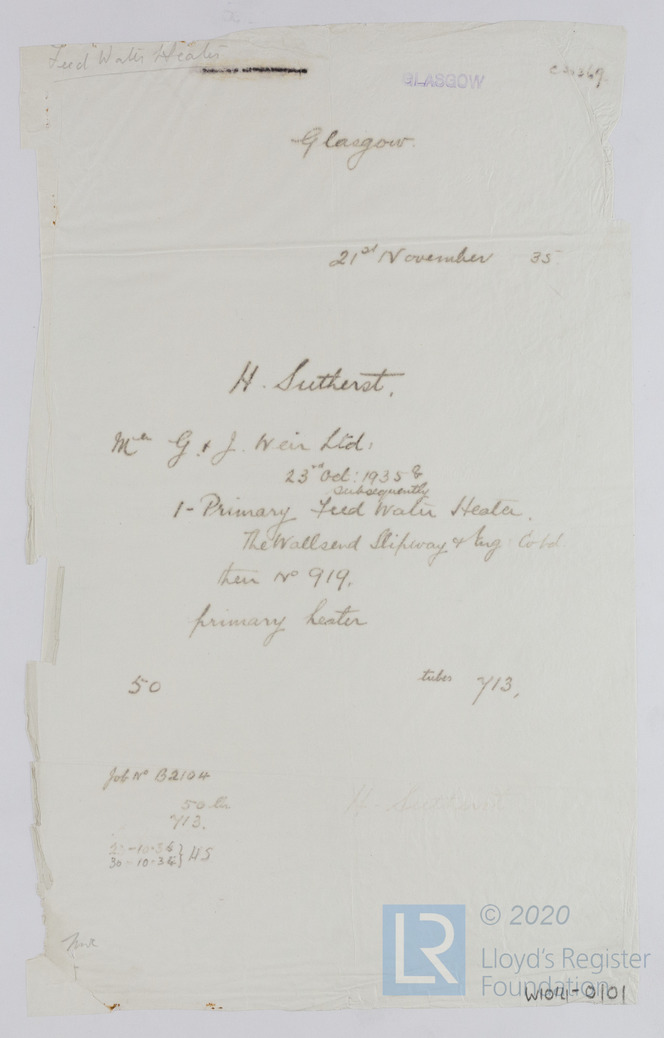 Feed Water Heater
GLASGOW
Glasgow.
21st November 35
H. Sutherst.
Mrs G. & J. Weir Ltd.
23rd Oct: 1935 &
subsequently
1- Primary Feed Water Heater.
The Wallsend Slipway & Eng. Co Ld.
their No 919.
primary heater
50 tubes 713.
Job No B2104
50 lbs
713.
H. Sutherst
30-10-35 } HS
© 2020
LR
Lloyd's Register
Foundation
W1074-0101